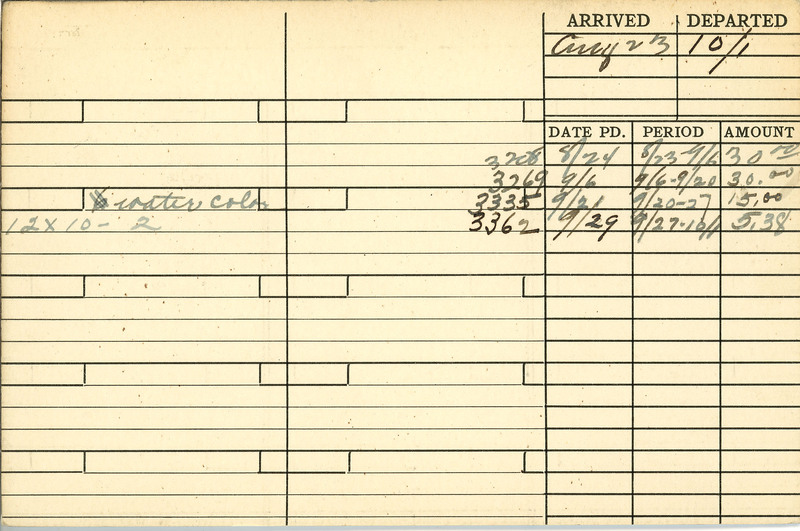 ARRIVED DEPARTED
Aug 23 10/1
DATE PD. PERIOD AMOUNT
3208 8/24 8/23-9/6 30.00
3269 9/6 9/6-9/20 30.00
water color 3335 9/21 9/20-27 15.00
12x10- 2 3362 9/29 9/27-10/1 5.38